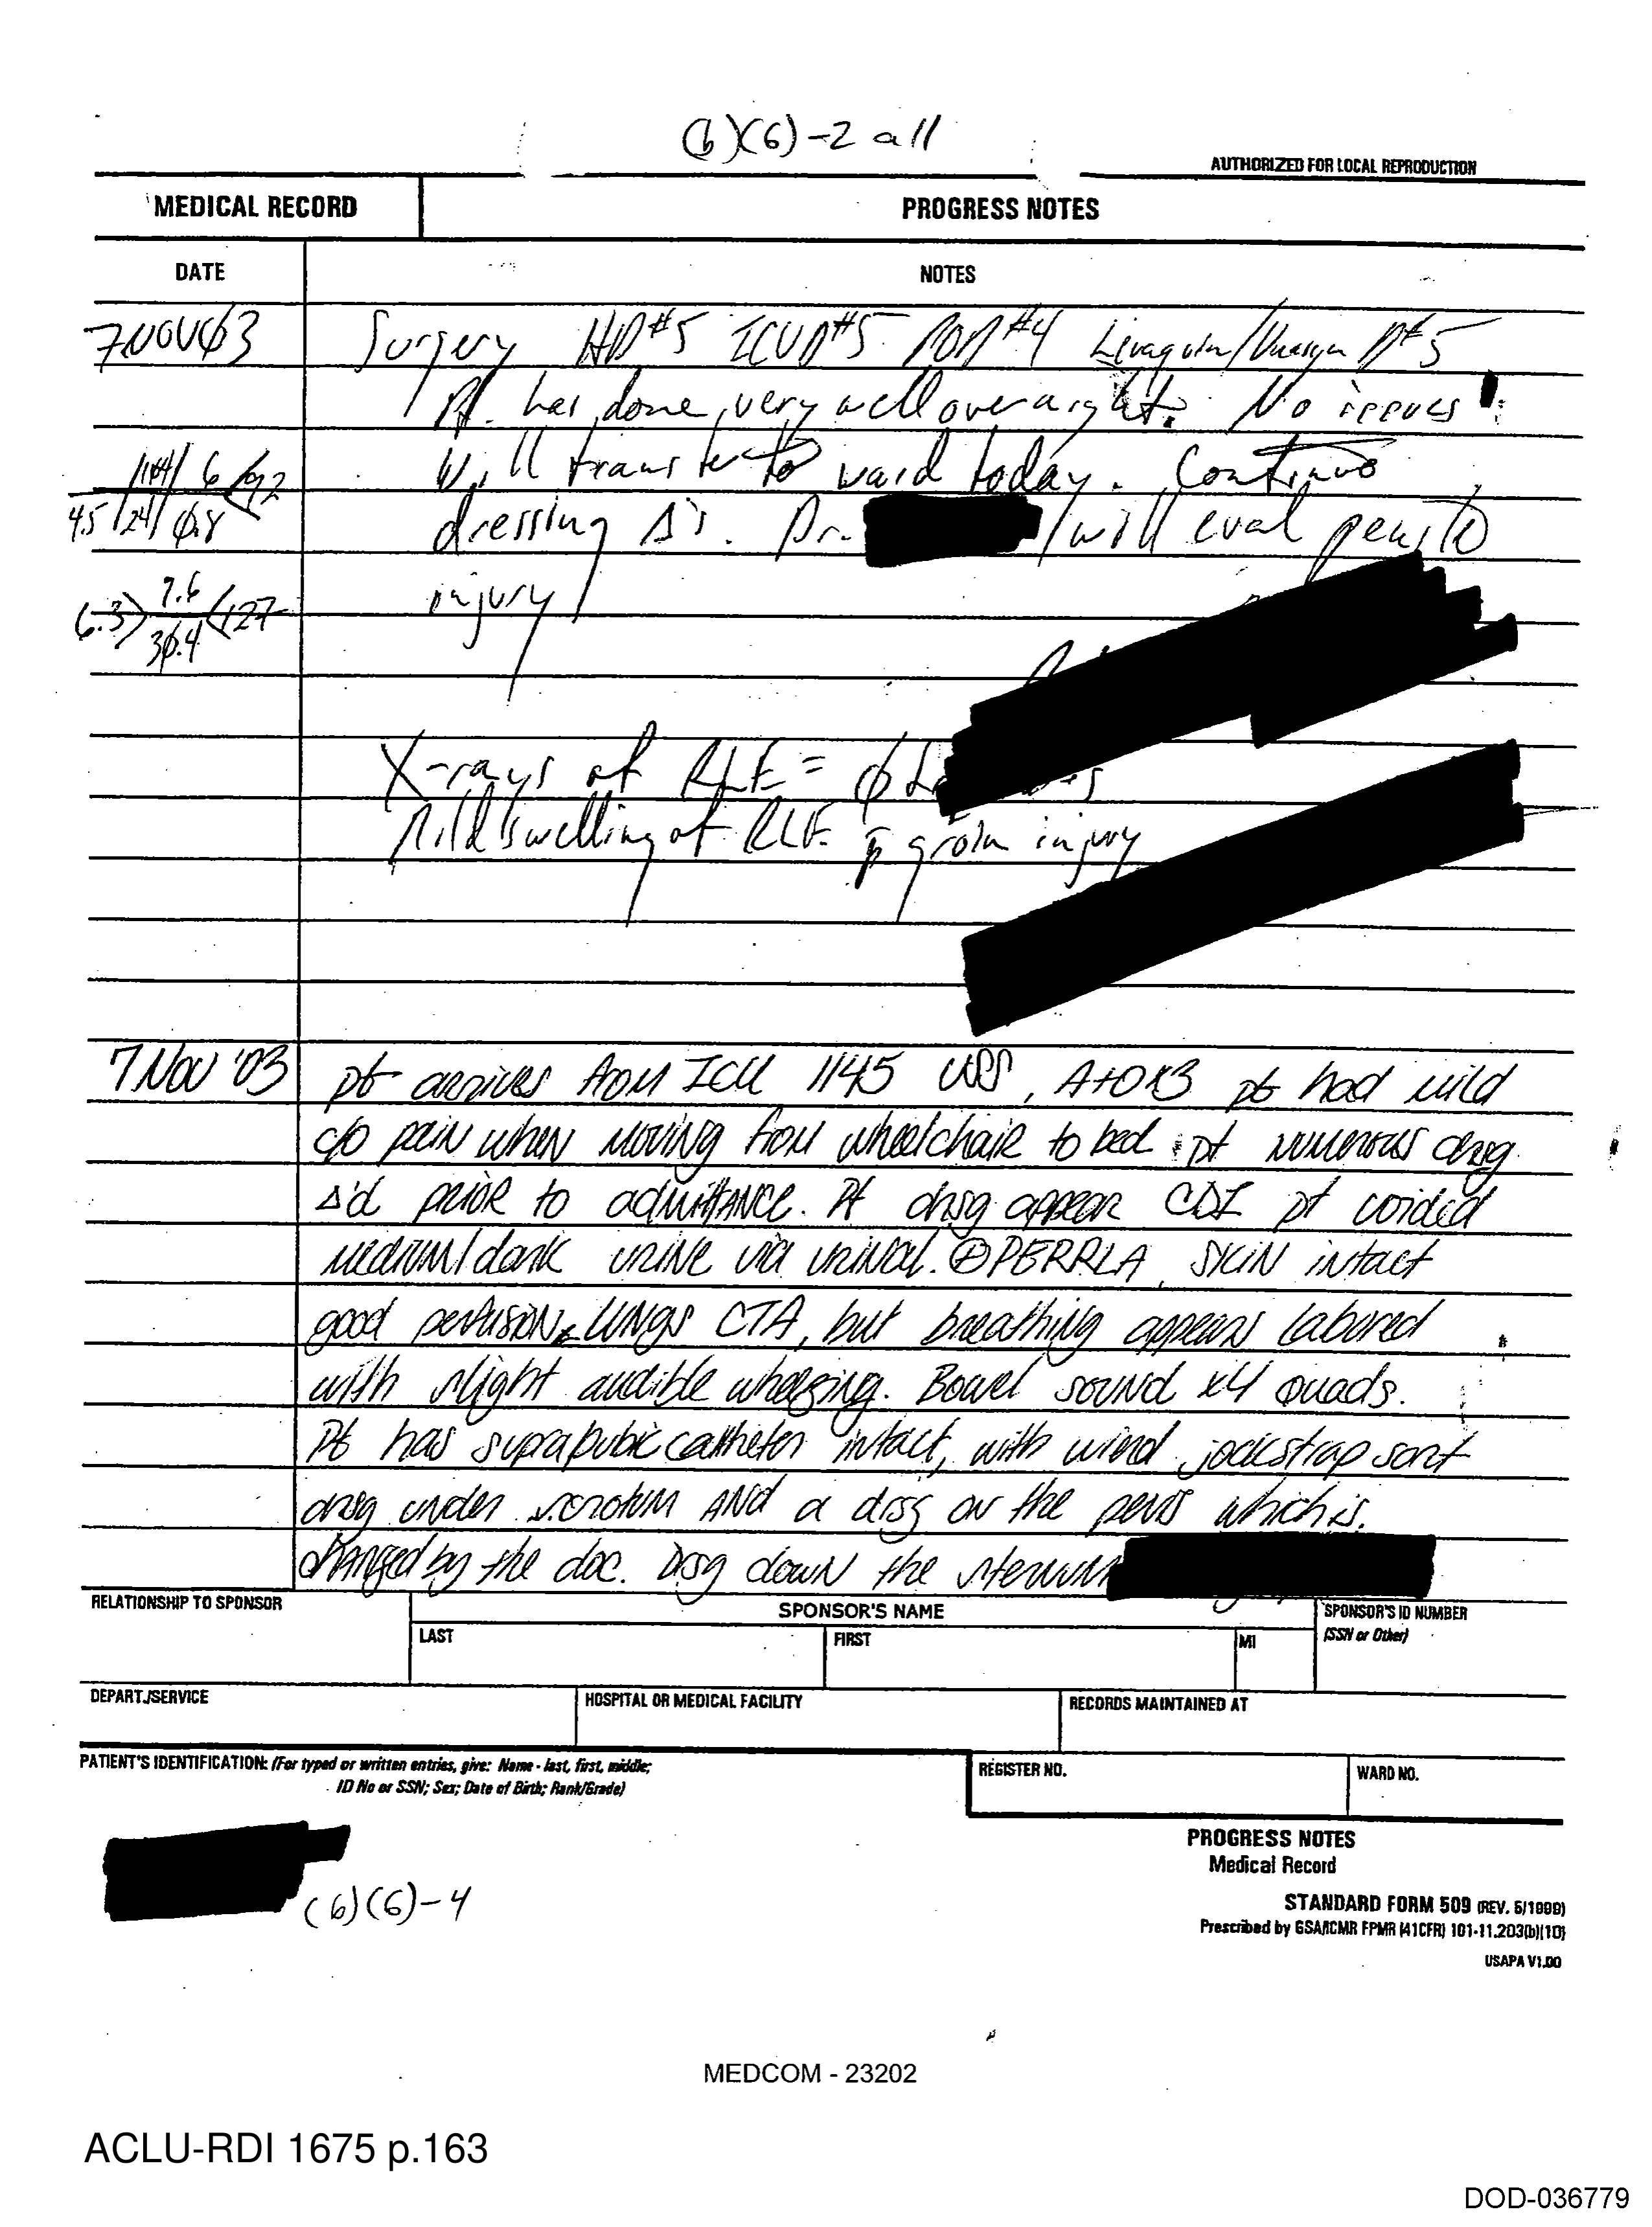 (b)(6)-2 all
AUTHORIZED FOR LOCAL REPRODUCTION
MEDICAL RECORD PROGRESS NOTES
DATE NOTES
7NOV03 Surgery HD#5 ICUD#5 POD#4 Levaquin/Unasyn D#5
Pt. has done very well overnight. No issues
104/ 6 /92 Will transfer to ward today. Continue
4.5/24/0.8 dressing Δ's. Dr. will eval penile
injury
6.3 7.6 127
30.4
X-rays of RLE = ϕ
Mild swelling of RLE p̄ groin injury
7 Nov '03 pt arrives from ICU 1145 VSS, A+Ox3 pt had mild
c/o pain when moving from wheelchair to bed pt numerous drsg
Δ'd prior to admittance. Pt drsg appear CDI pt voided
medium/dark urine via urinal. ⊕PERRLA, skin intact
good perfusion, lungs CTA, but breathing appears labored
with slight audible wheezing. Bowel sound x4 quads.
Pt has suprapubic catheter intact, with jockstrap sort
drsg under scrotum and a drsg on the penis which is
changed by the doc. Drsg down the sternum
RELATIONSHIP TO SPONSOR SPONSOR'S NAME SPONSOR'S ID NUMBER
LAST FIRST MI (SSN or Other)
DEPART./SERVICE HOSPITAL OR MEDICAL FACILITY RECORDS MAINTAINED AT
PATIENT'S IDENTIFICATION: (For typed or written entries, give: Name - last, first, middle; REGISTER NO. WARD NO.
ID No or SSN; Sex; Date of Birth; Rank/Grade)
PROGRESS NOTES
Medical Record
(b)(6)-4
STANDARD FORM 509 (REV. 5/1999)
Prescribed by GSA/ICMR FPMR (41CFR) 101-11.203(b)(10)
USAPA V1.00
MEDCOM - 23202
ACLU-RDI 1675 p.163
DOD-036779